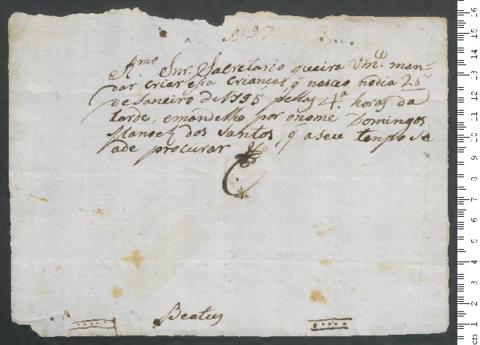 1897
A.mo Snr. Sacretario queira Vm.ce man-
dar criar esta criança q nasceo nodia 25
de Janeiro de 1795 pellas 4.ª horas da
tarde, emandelhe por onome Domingos
Manoel dos Santos, q aseu tempo se
ade procurar
Beatus